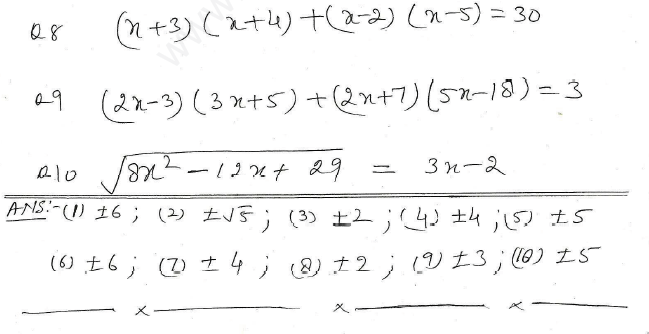 Q8 (x+3)(x+4)+(x-2)(x-5)=30
Q9 (2x-3)(3x+5)+(2x+7)(5x-18)=3
Q10 √8x²-12x+29 = 3x-2
ANS:- (1) ±6 ; (2) ±√5 ; (3) ±2 ; (4) ±4 ; (5) ±5
(6) ±6 ; (7) ±4 ; (8) ±2 ; (9) ±3 ; (10) ±5
x x x